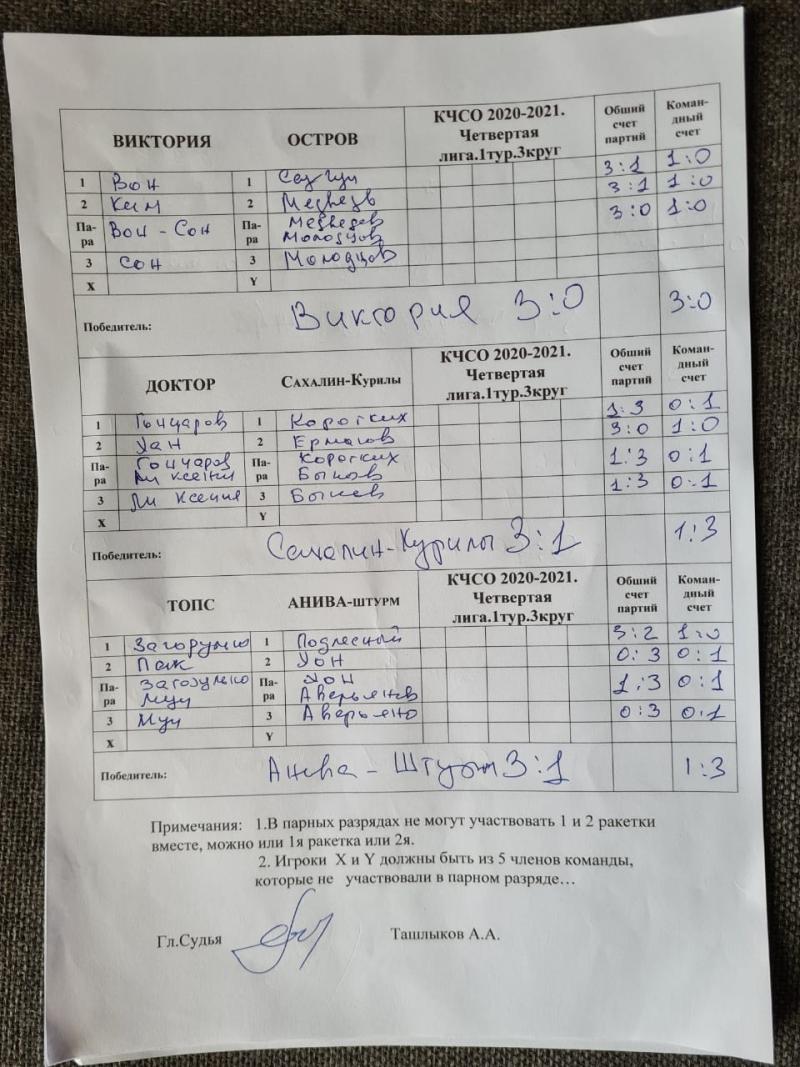 ВИКТОРИЯ ОСТРОВ КЧСО 2020-2021. Четвертая лига.1тур.3круг Общий счет партий Коман-дный счет
1 Вон 1 3:1 1:0
2 Ким 2 Медведв 3:1 1:0
Па-ра Вон - Сон Па-ра Медведев Молодцов 3:0 1:0
3 Сон 3 Молодцов
X Y
Победитель: Виктория 3:0 3:0
ДОКТОР САХАЛИН-КУРИЛЫ КЧСО 2020-2021. Четвертая лига.1тур.3круг Общий счет партий Коман-дный счет
1 Гончаров 1 Коротких 1:3 0:1
2 Хан 2 Ермаков 3:0 1:0
Па-ра Гончаров Ли Ксения Па-ра Коротких Быков 1:3 0:1
3 Ли Ксения 3 1:3 0:1
X Y
Победитель: Сахалин-Курилы 3:1 1:3
ТОПС АНИВА-ШТУРМ КЧСО 2020-2021. Четвертая лига.1тур.3круг Общий счет партий Коман-дный счет
1 1 Подлесный 3:2 1:0
2 Пак 2 Хон 0:3 0:1
Па-ра Па-ра Хон Аверьянов 1:3 0:1
3 Мун 3 0:3 0:1
X Y
Победитель: Анива - Штурм 3:1 1:3
Примечания: 1.В парных разрядах не могут участвовать 1 и 2 ракетки
вместе, можно или 1я ракетка или 2я.
2. Игроки X и Y должны быть из 5 членов команды,
которые не участвовали в парном разряде…
Гл.Судья Ташлыков А.А.